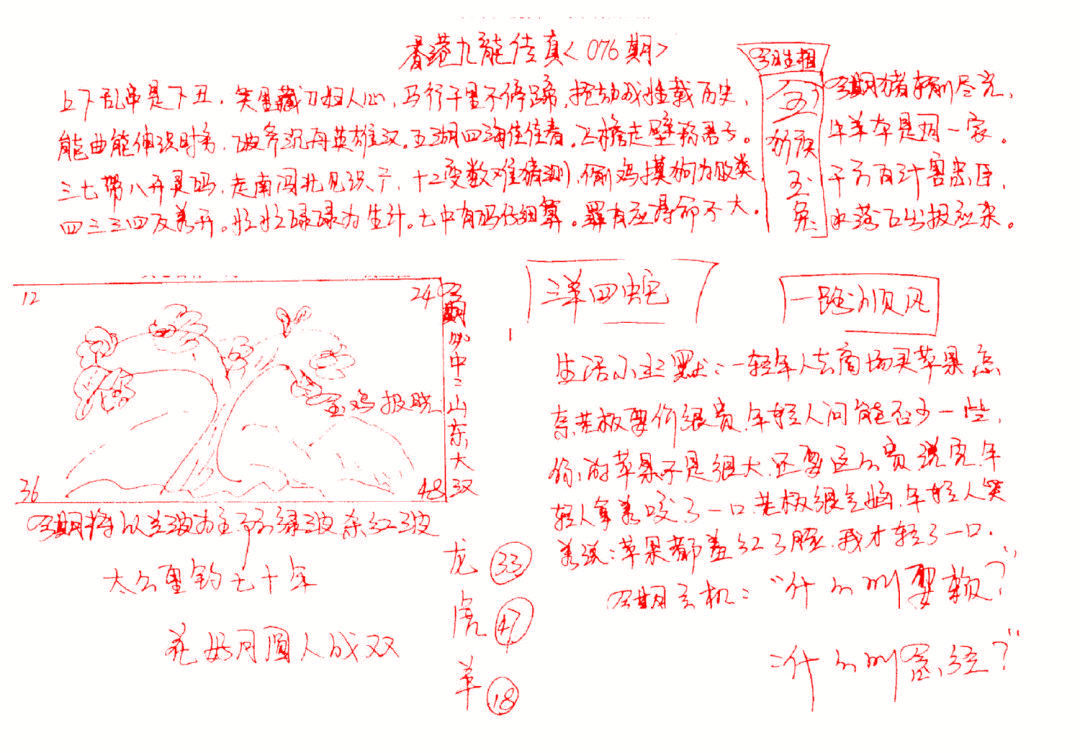 香港九龙传真<076期>
上下乱串是下丑,笑里藏刀妇人心,马行千里不停蹄,摇动我性载历史,
能曲能伸识时务,破斧沉舟英雄汉。五湖四海住住着。飞檐走壁
三七带八开灵码,走南闯北见识广,十二变数难猜测,偷鸡摸狗为败类
四三三四反着开。忙忙碌碌为生计。七中有码仔细算。罪有应得命不大。
生相
金
猴
玉
兔
期猪
牛羊本是同一家。
千方百计害忠臣,
水落石出报应来。
12
24
36
48
玉鸡报晓
期必中二山东大双
期将以兰波为主绿波杂红波
太公里钓七十年
花好月圆人成双
龙 33
虎 47
羊 18
三羊四蛇
一路顺风
生活小幽默:一轻年人去商场买苹果,怎
奈老板要价很贵,年轻人问能否少一些,
你的苹果不是很大,还要这么贵,说完年
轻人拿着咬了一口,老板很气恼,年轻人笑
着说:苹果都羞红了脸,我才轻了一口.
期玄机:"什么叫耍赖?"
:什么叫